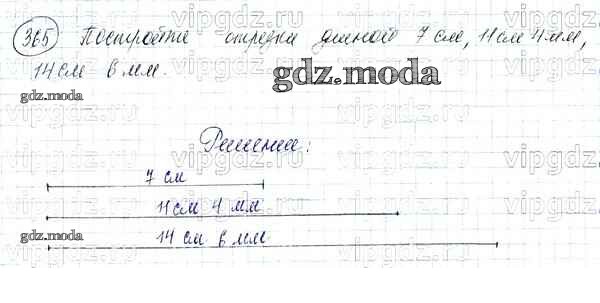 365 Постройте отрезки длиной 7 см, 11 см 4 мм,
14 см 6 мм.
gdz.moda
gdz.moda
Решение:
7 см
11 см 4 мм
gdz.moda
14 см 6 мм
vipgdz.ru